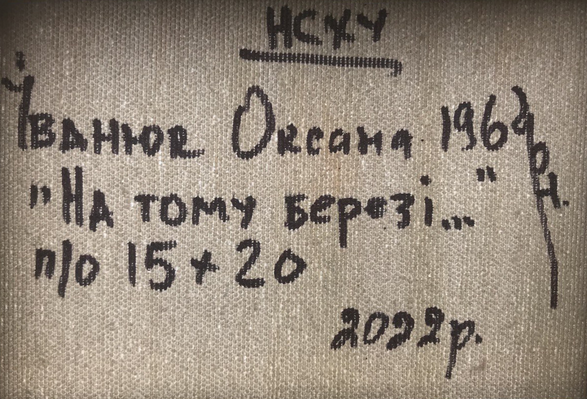 НСХУ
Іванюк Оксана 1962р.н.
"На тому березі..."
п/о 15×20
2022р.